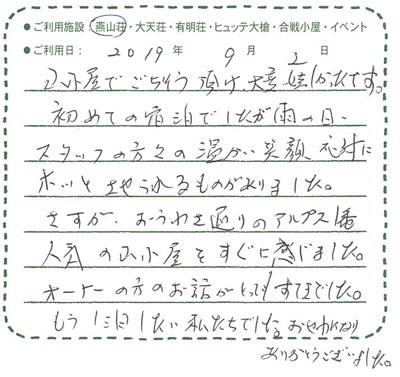 ●ご利用施設 燕山荘・大天荘・有明荘・ヒュッテ大槍・合戦小屋・イベント
●ご利用日: 2019年 9月 2日
山小屋でごちそう頂け、大変嬉しかったです。
初めての宿泊でしたが雨の日、
スタッフの方々の温かい笑顔 応対に
ホッとさせられるものがありました。
さすが、おうわさ通りのアルプス1番
人気の山小屋をすぐに感じました。
オーナーの方のお話がとってもすてきでした。
もう1泊したい私たちでした。おせわになり
ありがとうございました。